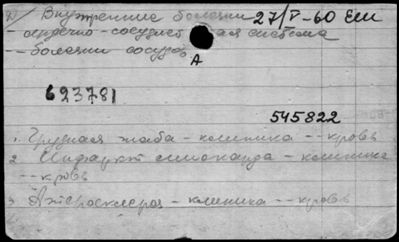 Д) Внутренние болезни 27/V-60 Ем
- сердечно-сосудистая система
-- болезни сосудов
А
623781
545822
1. Грудная жаба - клиника -- кровь
2. Инфаркт миокарда - клиника
-- кровь
3. Атеросклероз - клиника -- кровь